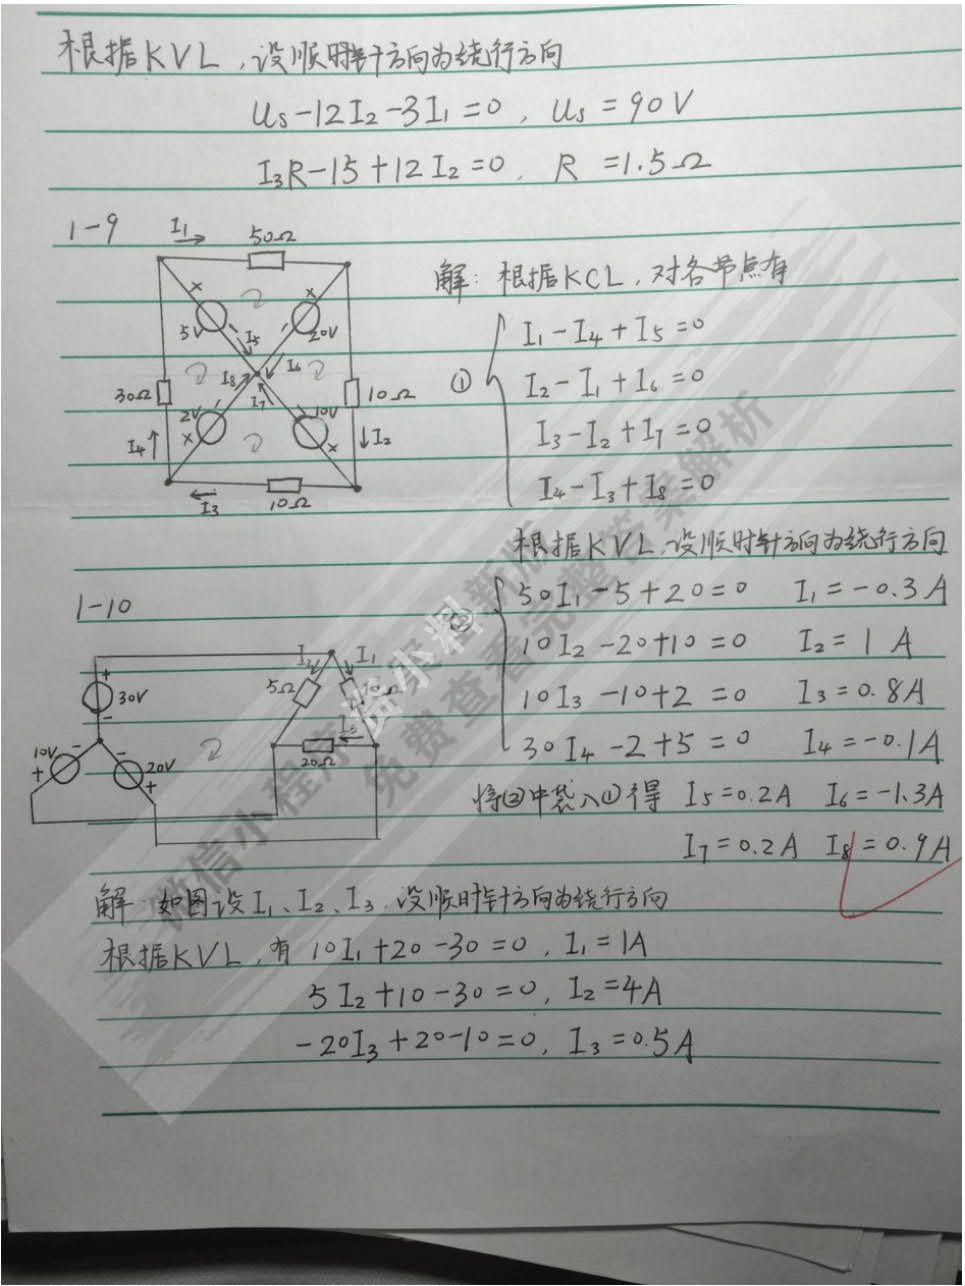 根据KVL,设顺时针方向为绕行方向
Us-12I2-3I1=0, Us=90V
I3R-15+12I2=0, R=1.5Ω
1-9
I1
50Ω
解:根据KCL,对各节点有
5V
20V
I5
I6
I8
I7
30Ω
10Ω
2V
10V
I4
I2
I3
10Ω
① I1-I4+I5=0
I2-I1+I6=0
I3-I2+I7=0
I4-I3+I8=0
根据KVL,设顺时针方向为绕行方向
50I1-5+20=0 I1=-0.3A
10I2-20+10=0 I2=1A
10I3-10+2=0 I3=0.8A
30I4-2+5=0 I4=-0.1A
将②中代入①得 I5=0.2A I6=-1.3A
I7=0.2A I8=0.9A
1-10
30V
10V
20V
I2
I1
5Ω
10Ω
I3
20Ω
解:如图设I1、I2、I3.设顺时针方向为绕行方向
根据KVL,有 10I1+20-30=0, I1=1A
5I2+10-30=0, I2=4A
-20I3+20-10=0, I3=0.5A
免费查看完整答案解析